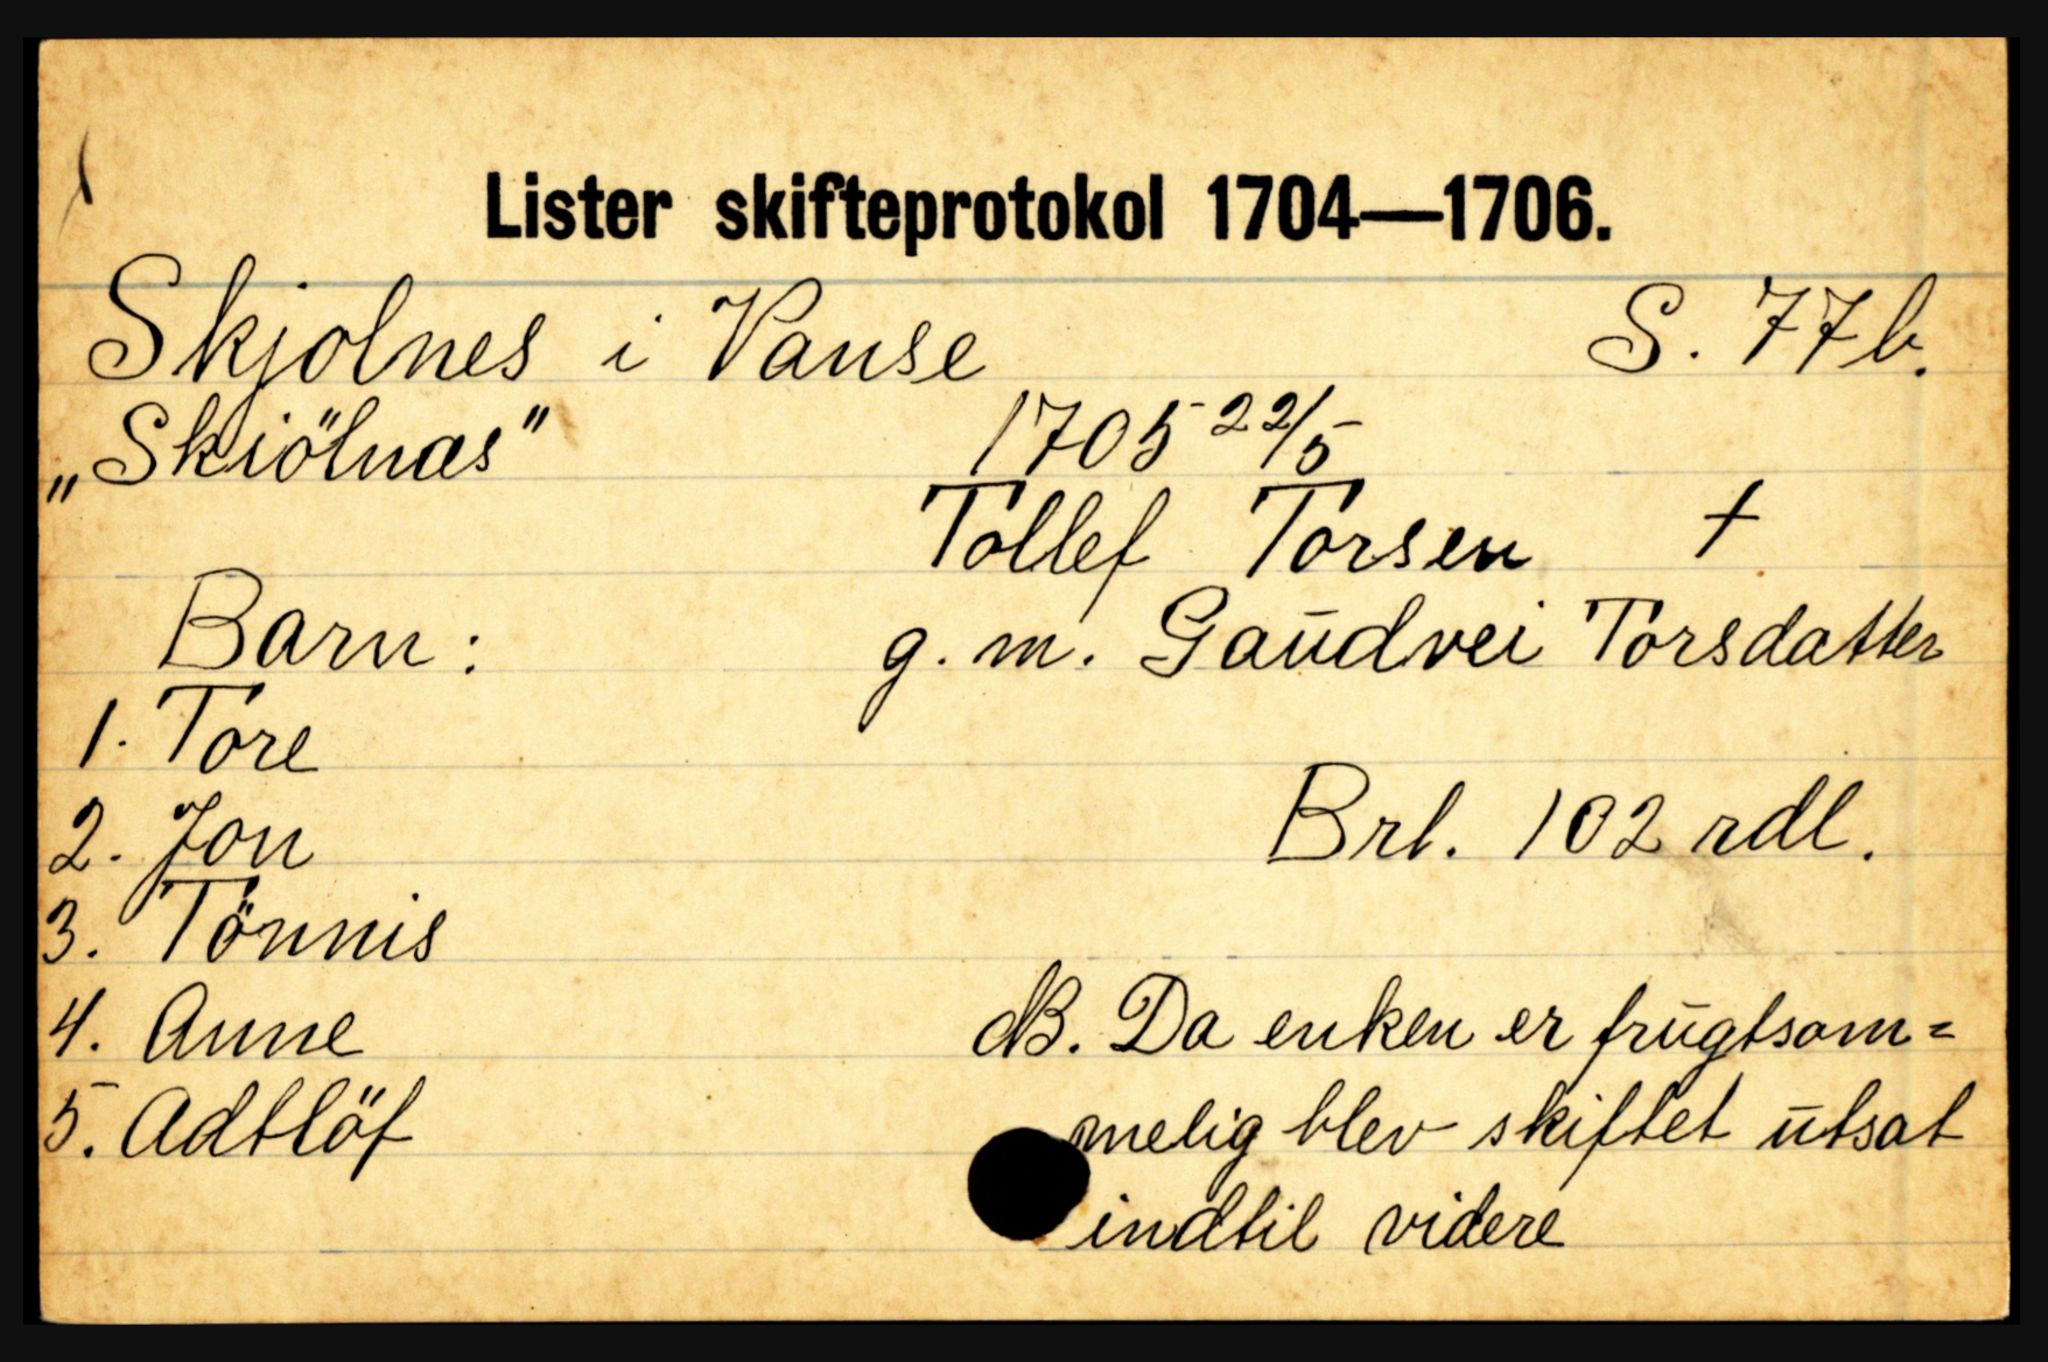 Lister skifteprotokol 1704—1706.
Skjolnes i Vanse S. 77b.
„Skiölnæs" 1705 22/5
Tollef Torsen †
Barn: g. m. Gaūdvei Torsdatter
1. Tore
2. Jon Brt. 102 rdl.
3. Tönnis
4. Anne NB. Da enken er frūgtsom=
5. Adtlöf melig blev skiftet ūtsat
indtil videre